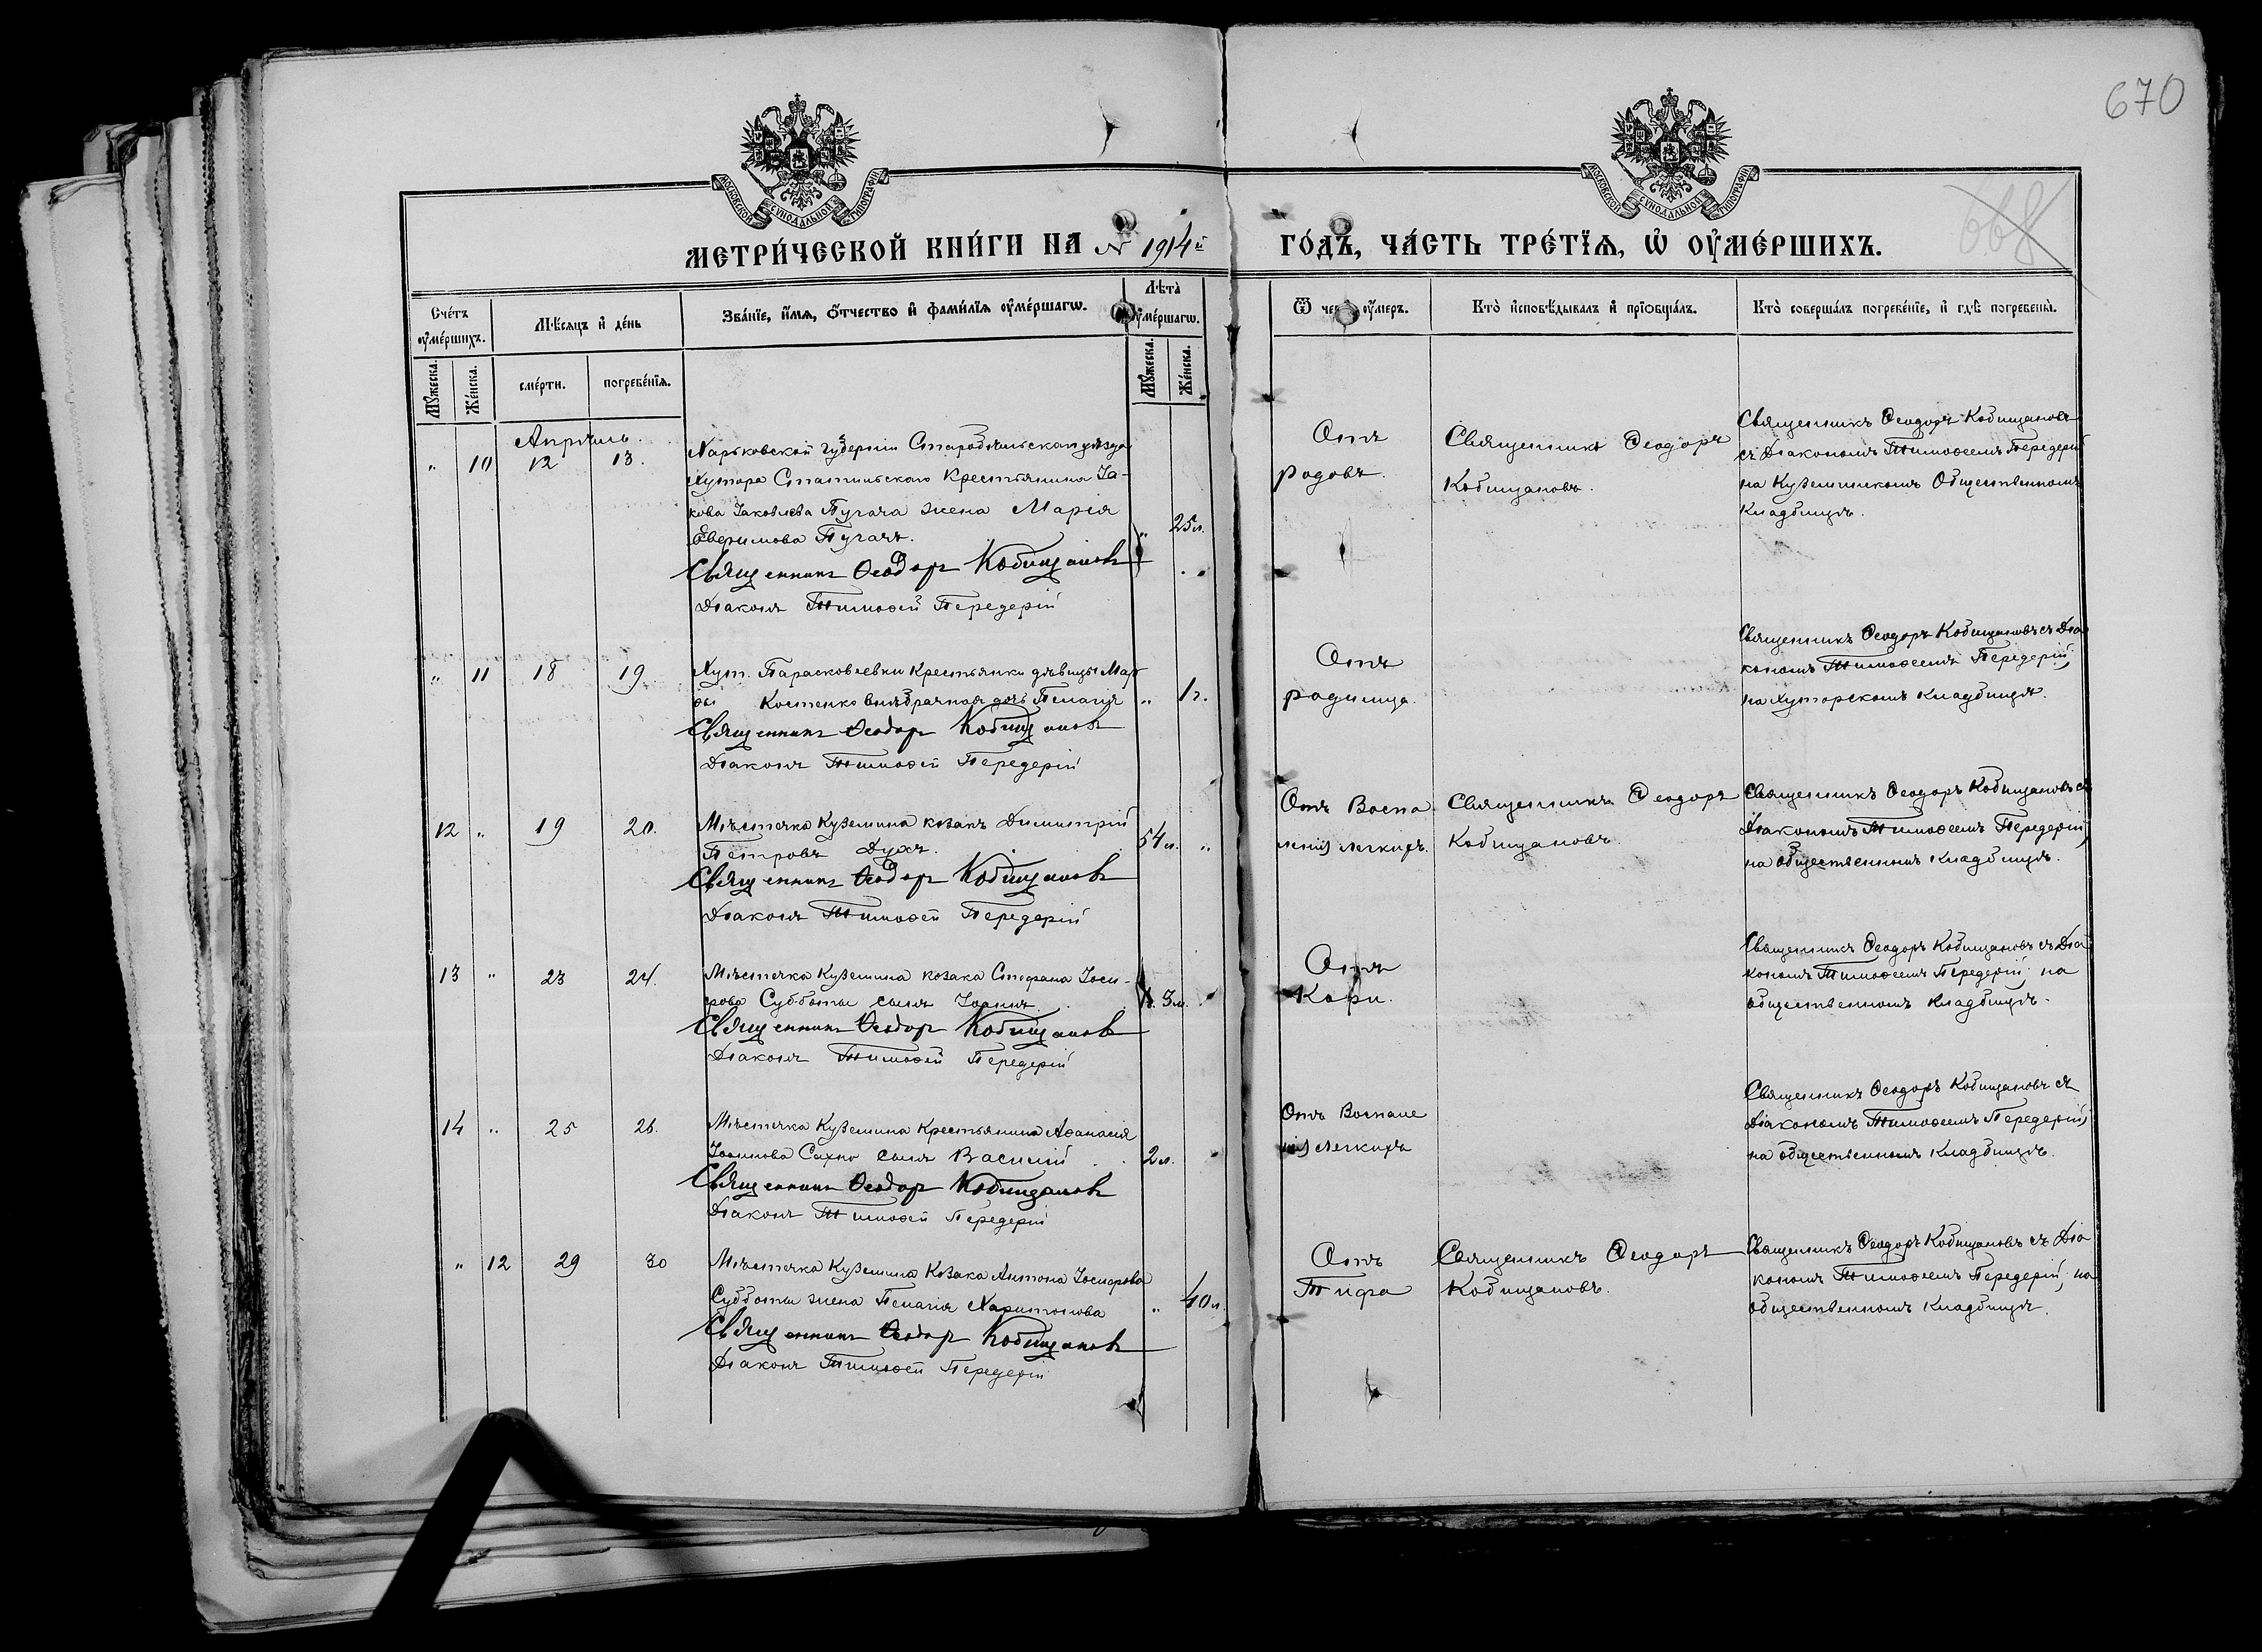 670
668
МОСКОВСКОЙ СѴНОДАЛЬНОЙ ТИПОГРАФІИ
МОСКОВСКОЙ СѴНОДАЛЬНОЙ ТИПОГРАФІИ
МЕТРИ́ЧЕСКОЙ КНИ́ГИ НА 1914й ГО́ДЪ, ЧА́СТЬ ТРЕ́ТЇѦ, Ѡ҆ ОУ҆МЕ́РШИХЪ.
Сче́тъ оу҆ме́ршихъ.
Мѣ́сѧцъ и҆ де́нь
Зва́нїе, и҆́мѧ, ѻ҆́тчество и҆ фами́лїѧ оу҆ме́ршагѡ.
Лѣта̀ оу҆ме́ршагѡ.
Ѿ чегѡ̀ оу҆́меръ.
Кто̀ и҆сповѣ́дывалъ и҆ прїѡбща́лъ.
Кто̀ соверша́лъ погребе́нїе, и҆ гдѣ̀ погребены̀.
Мꙋ́жеска. Же́нска. сме́рти. погребе́нїѧ. Мꙋ́жеска. Же́нска.
Апрѣль.
„ 10 12 13.
Харьковской губерніи Старобѣльскаго уѣзда
Хутора Крестьянина Іа-
кова Іаковлева Пугача жена Марія
Евфимова Пугачъ.
„ 25 л.
Священникъ Ѳеодоръ Кобищановъ
Діаконъ Тимоѳей Передерій
Отъ
родовъ.
Священникъ Ѳеодоръ
Кобищановъ.
Священникъ Ѳеодоръ Кобищановъ
съ Діакономъ Тимоѳеемъ Передерій
на Куземинскомъ Общественномъ
Кладбищѣ.
„ 11 18 19
Хут. Парасковѣевки Крестьянки дѣвицы Мар
ѳы Костенко внѣбрачная дочь Пелагія
„ 1 г.
Священникъ Ѳеодоръ Кобищановъ
Діаконъ Тимоѳей Передерій
Отъ
родимца.
Священникъ Ѳеодоръ Кобищановъ съ Діа
кономъ Тимоѳеемъ Передерій
на хуторскомъ кладбищѣ.
12 „ 19 20.
Мѣстечка Куземина козакъ Димитрій
Петровъ Духъ.
54 л. „
Священникъ Ѳеодоръ Кобищановъ
Діаконъ Тимоѳей Передерій
Отъ Воспа
ленія легкихъ.
Священникъ Ѳеодоръ
Кобищановъ.
Священникъ Ѳеодоръ Кобищановъ съ
Діакономъ Тимоѳеемъ Передерій,
на общественномъ кладбищѣ.
13 „ 23 24.
Мѣстечка Куземина козака Стефана Іоси-
фова Субботы сынъ Іоаннъ.
3 м.
Священникъ Ѳеодоръ Кобищановъ
Діаконъ Тимоѳей Передерій
Отъ
Кори.
Священникъ Ѳеодоръ Кобищановъ съ Діа
кономъ Тимоѳеемъ Передерій на
общественномъ кладбищѣ.
14 „ 25 26.
Мѣстечка Куземина Крестьянина Аѳанасія
Іоаннова Сахно сынъ Василій
2 л.
Священникъ Ѳеодоръ Кобищановъ
Діаконъ Тимоѳей Передерій
Отъ Воспале
нія легкихъ
Священникъ Ѳеодоръ Кобищановъ съ
Діакономъ Тимоѳеемъ Передерій
на общественномъ кладбищѣ.
„ 12 29 30
Мѣстечка Куземина Козака Антона Іосифова
Субботы жена Пелагія Харитонова
„ 40 л.
Священникъ Ѳеодоръ Кобищановъ
Діаконъ Тимоѳей Передерій
Отъ
Тифа
Священникъ Ѳеодоръ
Кобищановъ.
Священникъ Ѳеодоръ Кобищановъ съ Діа
кономъ Тимоѳеемъ Передерій, на
общественномъ кладбищѣ.